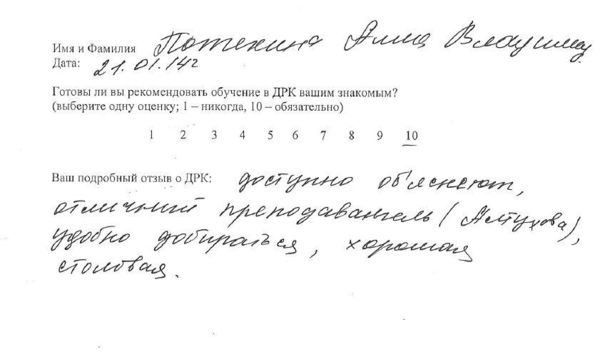 Имя и Фамилия Потехина Алла Владимир
Дата: 21.01.14г
Готовы ли вы рекомендовать обучение в ДРК вашим знакомым?
(выберите одну оценку; 1 – никогда, 10 – обязательно)
1 2 3 4 5 6 7 8 9 10
Ваш подробный отзыв о ДРК: доступно об'яснеют,
отличный преподаватель (Алтухова),
удобно добираться, хорошая
столовая.